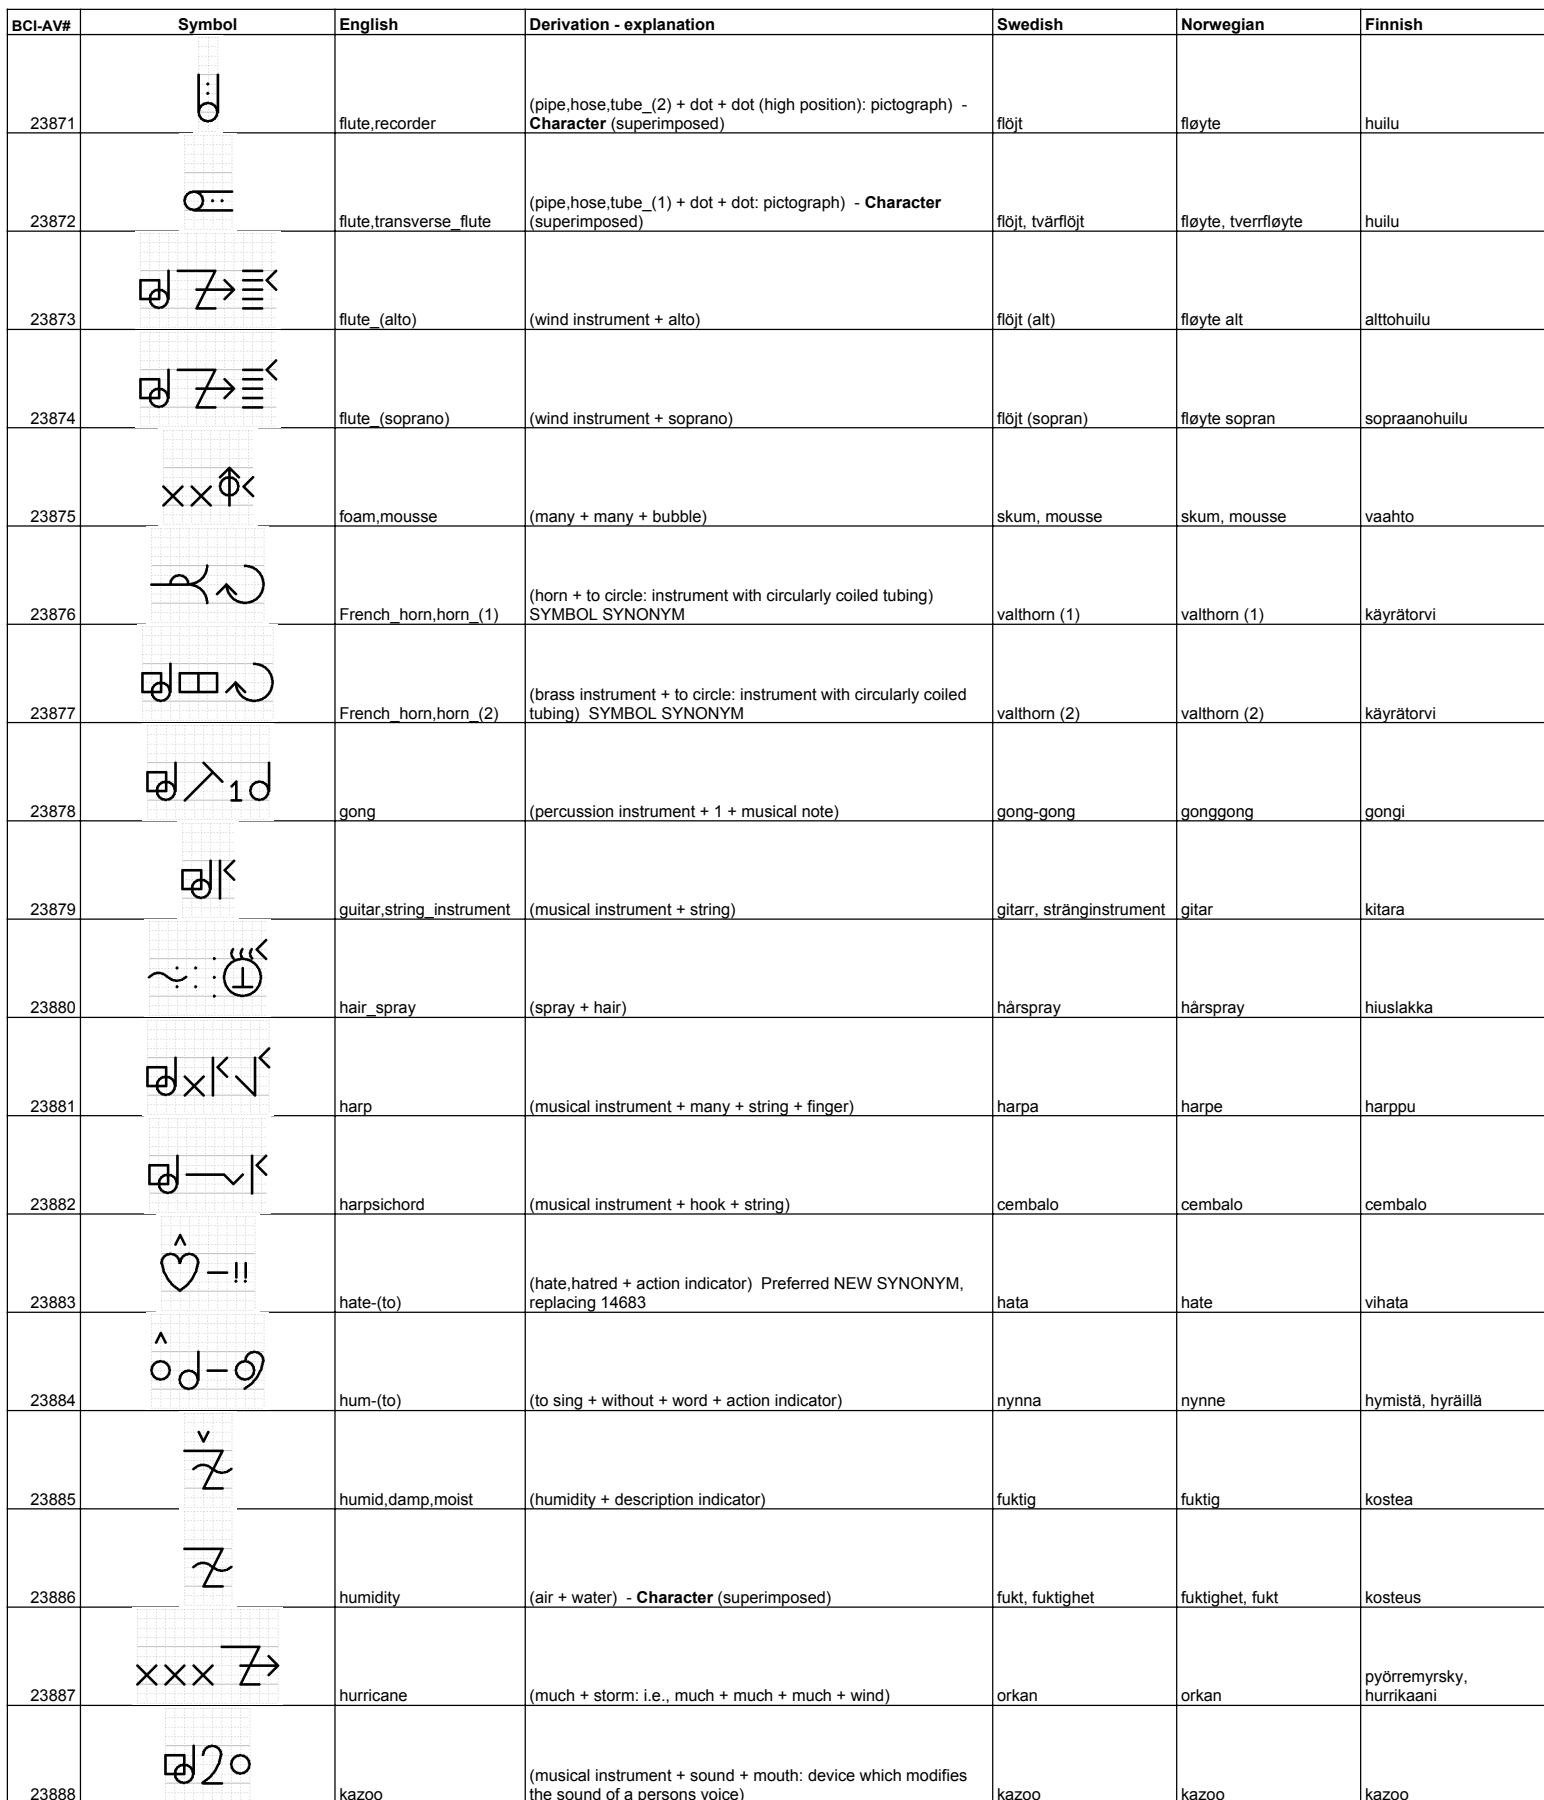 BCI-AV# Symbol English Derivation - explanation Swedish Norwegian Finnish
(pipe,hose,tube_(2) + dot + dot (high position): pictograph) -
23871 flute,recorder Character (superimposed) flöjt fløyte huilu
(pipe,hose,tube_(1) + dot + dot: pictograph) - Character
23872 flute,transverse_flute (superimposed) flöjt, tvärflöjt fløyte, tverrfløyte huilu
23873 flute_(alto) (wind instrument + alto) flöjt (alt) fløyte alt alttohuilu
23874 flute_(soprano) (wind instrument + soprano) flöjt (sopran) fløyte sopran sopraanohuilu
23875 foam,mousse (many + many + bubble) skum, mousse skum, mousse vaahto
(horn + to circle: instrument with circularly coiled tubing)
23876 French_horn,horn_(1) SYMBOL SYNONYM valthorn (1) valthorn (1) käyrätorvi
(brass instrument + to circle: instrument with circularly coiled
23877 French_horn,horn_(2) tubing) SYMBOL SYNONYM valthorn (2) valthorn (2) käyrätorvi
23878 gong (percussion instrument + 1 + musical note) gong-gong gonggong gongi
23879 guitar,string_instrument (musical instrument + string) gitarr, stränginstrument gitar kitara
23880 hair_spray (spray + hair) hårspray hårspray hiuslakka
23881 harp (musical instrument + many + string + finger) harpa harpe harppu
23882 harpsichord (musical instrument + hook + string) cembalo cembalo cembalo
(hate,hatred + action indicator) Preferred NEW SYNONYM,
23883 hate-(to) replacing 14683 hata hate vihata
23884 hum-(to) (to sing + without + word + action indicator) nynna nynne hymistä, hyräillä
23885 humid,damp,moist (humidity + description indicator) fuktig fuktig kostea
23886 humidity (air + water) - Character (superimposed) fukt, fuktighet fuktighet, fukt kosteus
pyörremyrsky,
23887 hurricane (much + storm: i.e., much + much + much + wind) orkan orkan hurrikaani
(musical instrument + sound + mouth: device which modifies
23888 kazoo the sound of a persons voice) kazoo kazoo kazoo